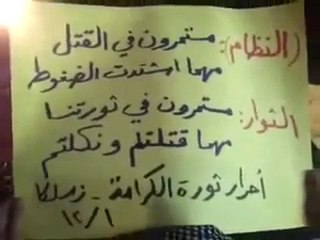 (النظام): مستمرون في القتل
مهما اشتدت الضغوط
الثوار: مستمرون في ثورتنا
مهما قتلتم و نكلتم
أحرار ثورة الكرامة - زملكا
١٢/١